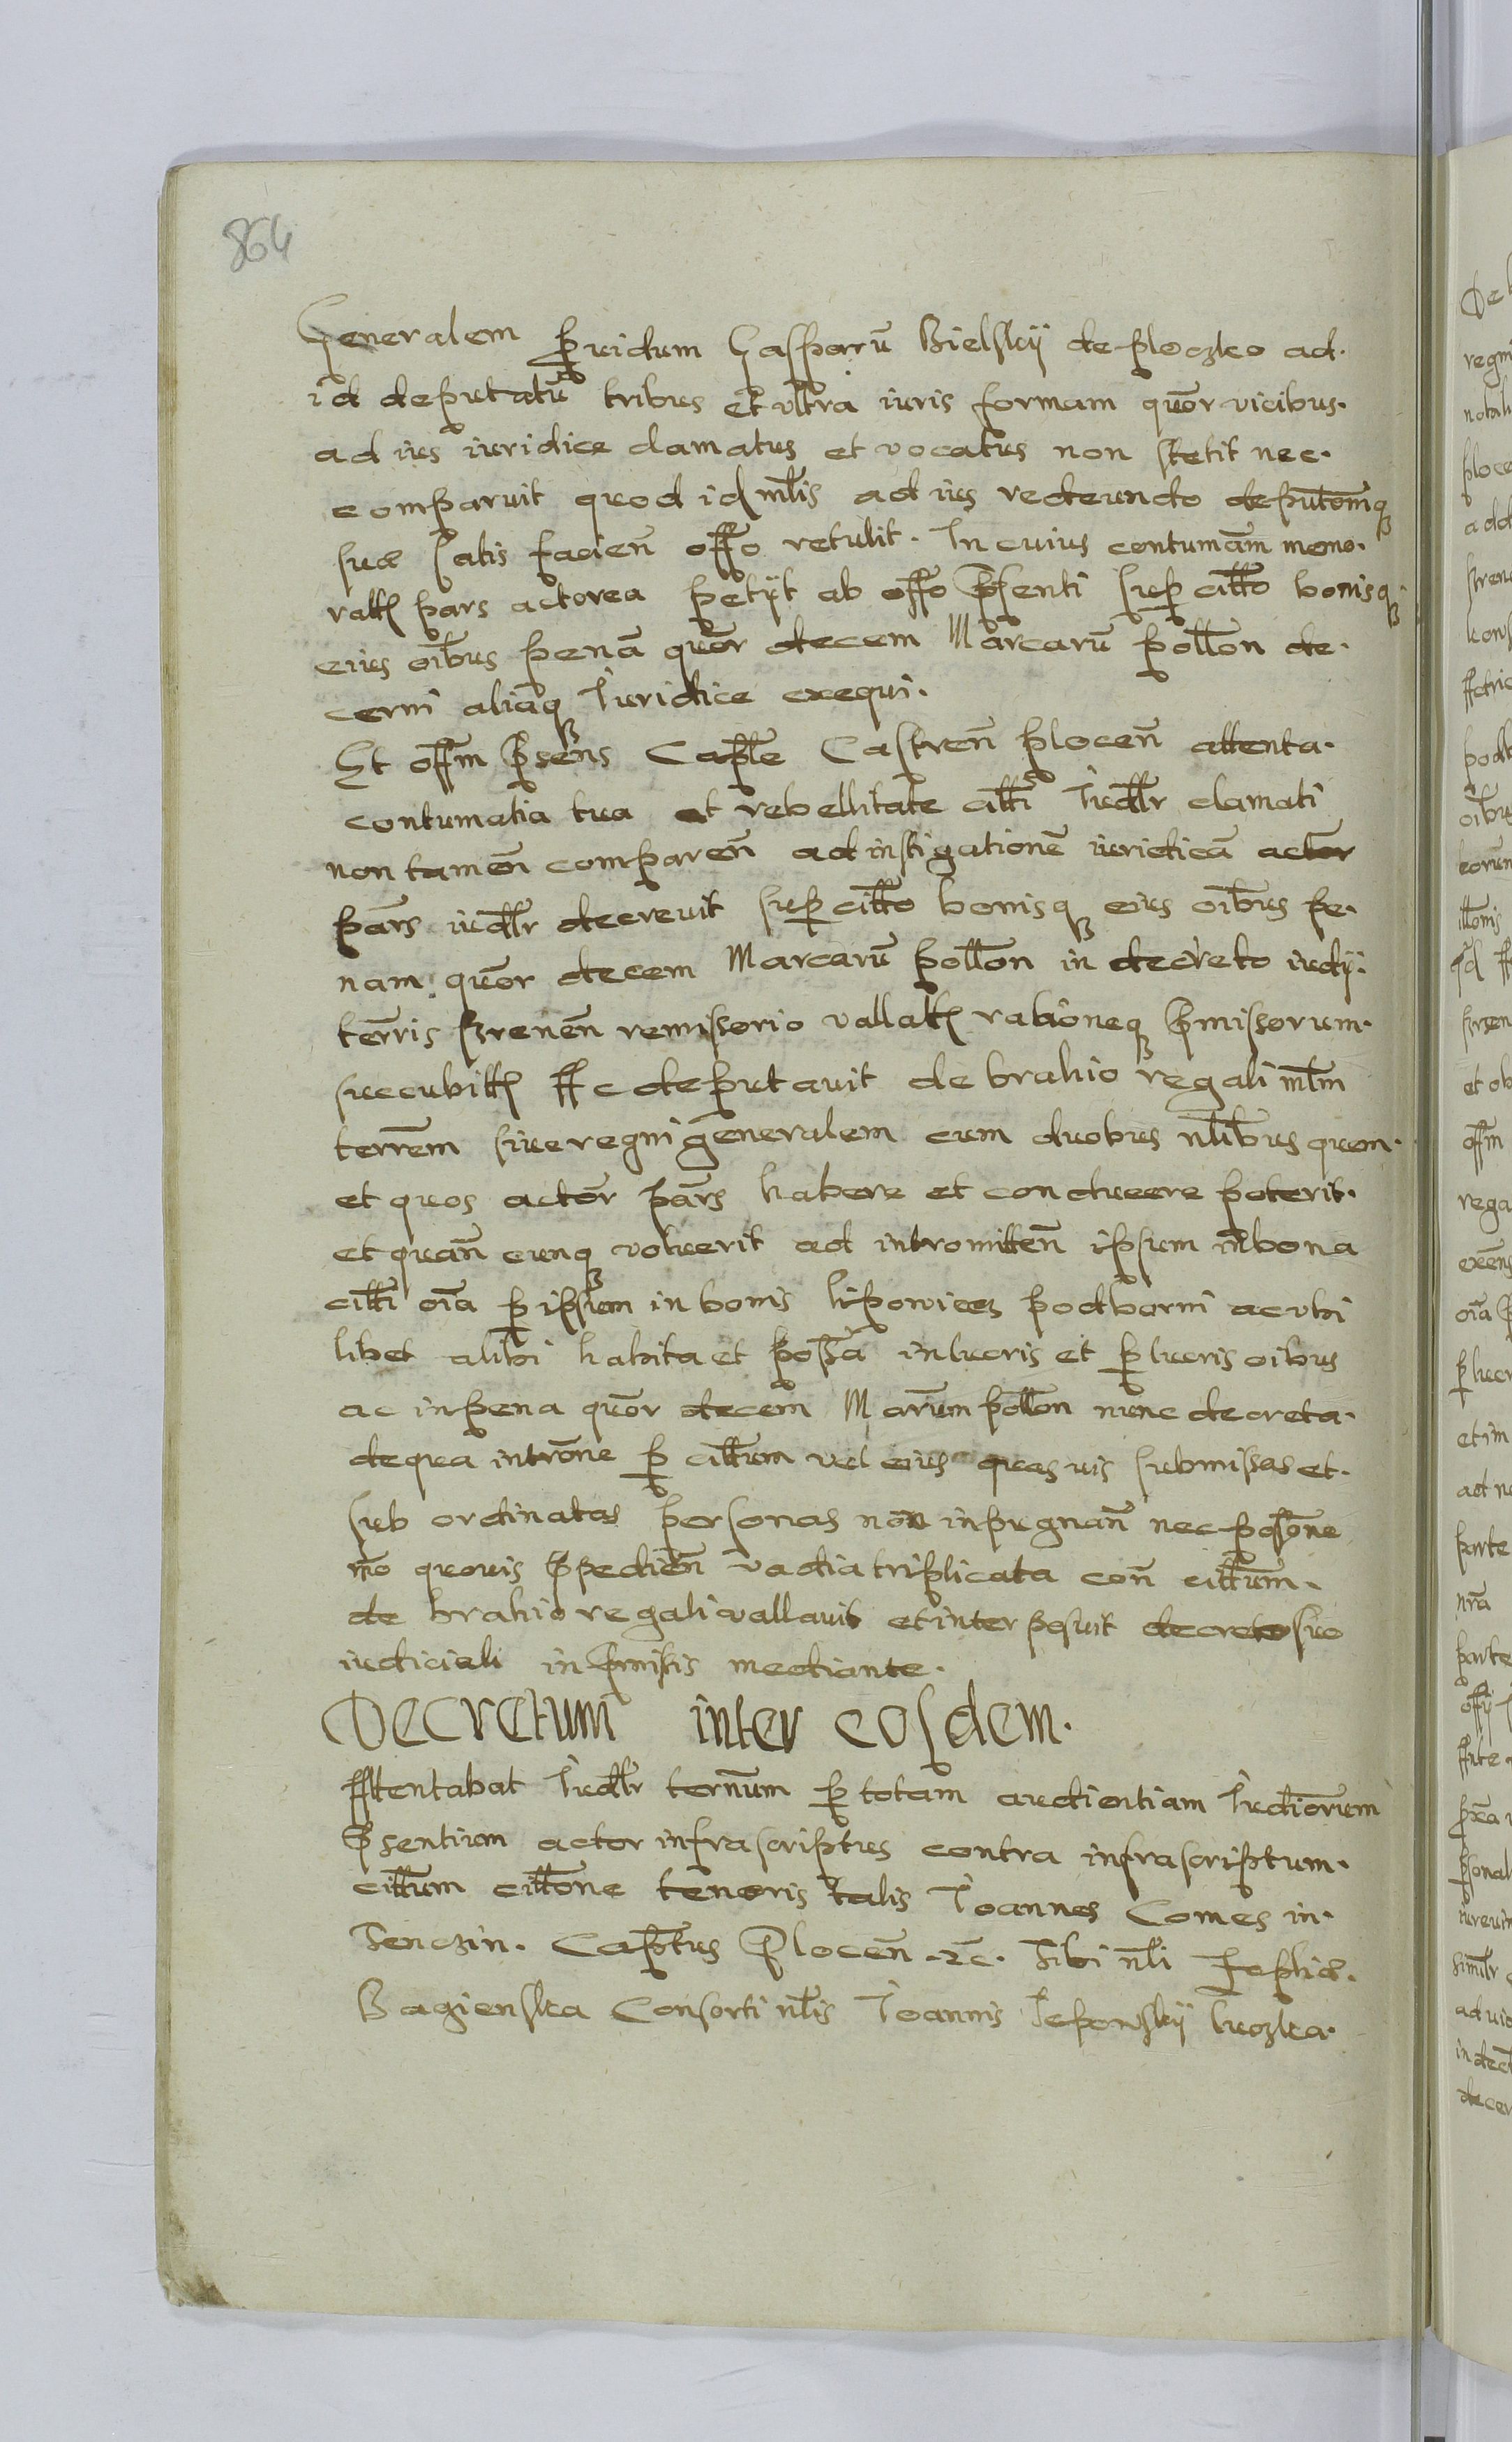 864
Generalem ꝓuidum Gasparū Bielskij de Ploczko ad.
id deputatū tribus et vltra iuris formam quōr vicibus.
ad ius iuridice clamatus et vocatus non stetit nec.
comparuit quod id mltis ad ius redeundo deputōmqȝ
sue satis facien̄ offo retulit. In cuius contumām memo.
ratꝭ pars actorea petijt ab offo p̄senti suꝑ cittō bonisqȝ
eius oībus penā quōr decem Marcarū pollon de.
cerni aliāqȝ Iuridice exequi.
Et offm p̄sens Caple Castren̄ plocen̄ attenta.
contumatia tua et rebellitate citti Iudlr clamati
non tamen̄ comparen̄ ad instigationē iuridicā actor
pārs iudlr decreuit suꝑ cittō bonisqȝ eius oībus pe.
nam quōr decem Marcarū pollon in decreto iudij.
terrīs srenen̄ remissorio vallatꝭ rationeqȝ p̄missorum.
succubittꝭ ff c deputauit de brahio regali mltm
terrēm siue regni generalem cum duobus nlibus quem.
et quos actōr pārs habere et conducere poterit.
et quan̄ cunqȝ voluerit ad intromitten̄ ipsum in bona
citti oīa ꝑ ipsum in bonis Liponiecz podborni ac vbi
libet alibi habita et possa in lucris et ꝑlucris oibus
ac in pena quōr decem Marūm pollon nunc decreta.
de qua intrōne ꝑ cittum vel eius quas uis submissas et.
sub ordinatas personas non inpugnan̄ nec possōne
mō quouis p̄pedien̄ vadia triplicata con̄ cittum.
de brahio regali vallauit et inter posuit decreto suo
iudiciali in p̄missis mediante.
Decretum inter eosdem.
Attentabat Iudlr ternum ꝑ totam audientiam Iudiōrum
p̄sentium actor infrascriptus contra infrascriptum.
cittum cittone teneris talis Ioannes Comes in.
Tenczin. Captus Plocen̄ .rc. Tibi nli Feplicr.
Bagienska Consorti nlis Ioannis Leponskij luczka.